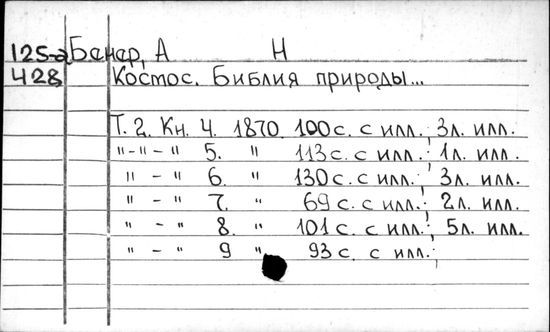 125-2 Бенар, А Н
428 Космос. Библия природы...
Т. 2. Кн. 4. 1870. 100 с. с илл.; 3л. илл.
"-"-" 5. " 113 с. с илл.; 1л. илл.
" - " 6. " 130 с. с илл.; 3л. илл.
" - " 7. " 69 с. с илл.; 2л. илл.
" - " 8. " 101 с. с илл.; 5л. илл.
" - " 9 " 93 с. с илл.;